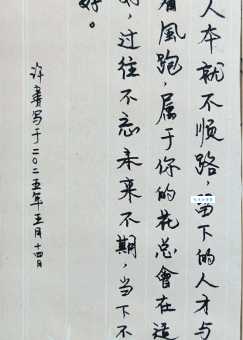 人本就不顺路，留下的人才与
風跑，属于你的花总會在
，过往不忘未来不期，当下不
好。
许書写于二〇二五年五月十四日